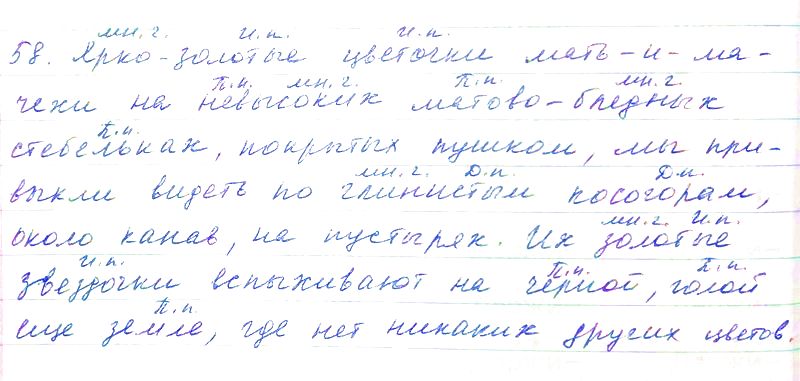 мн. г. И. п. И. п.
58. Ярко-золотые цветочки мать-и-ма-
П. п. мн. г. П. п. мн. г.
чехи на невысоких матово-бледных
П. п.
стебельках, покрытых пушком, мы при-
мн. г. Д. п. Д. п.
выкли видеть по глинистым косогорам,
мн. г. И. п.
около канав, на пустырях. Их золотые
И. п. П. п. П. п.
звездочки вспыхивают на черной, голой
П. п.
еще земле, где нет никаких других цветов.